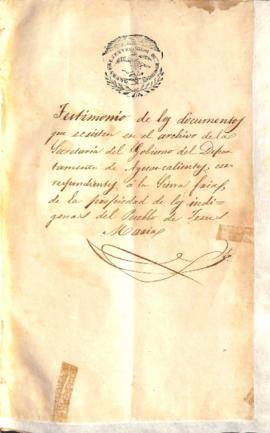 Testimonio de los documentos
que ecsisten en el archivo de la
Secretaría del Gobierno del Depar-
tamento de Aguascalientes, cor-
respondientes, á la Sierra fria,
de la propiedad de los indi-
genas del Pueblo de Jesus
Maria